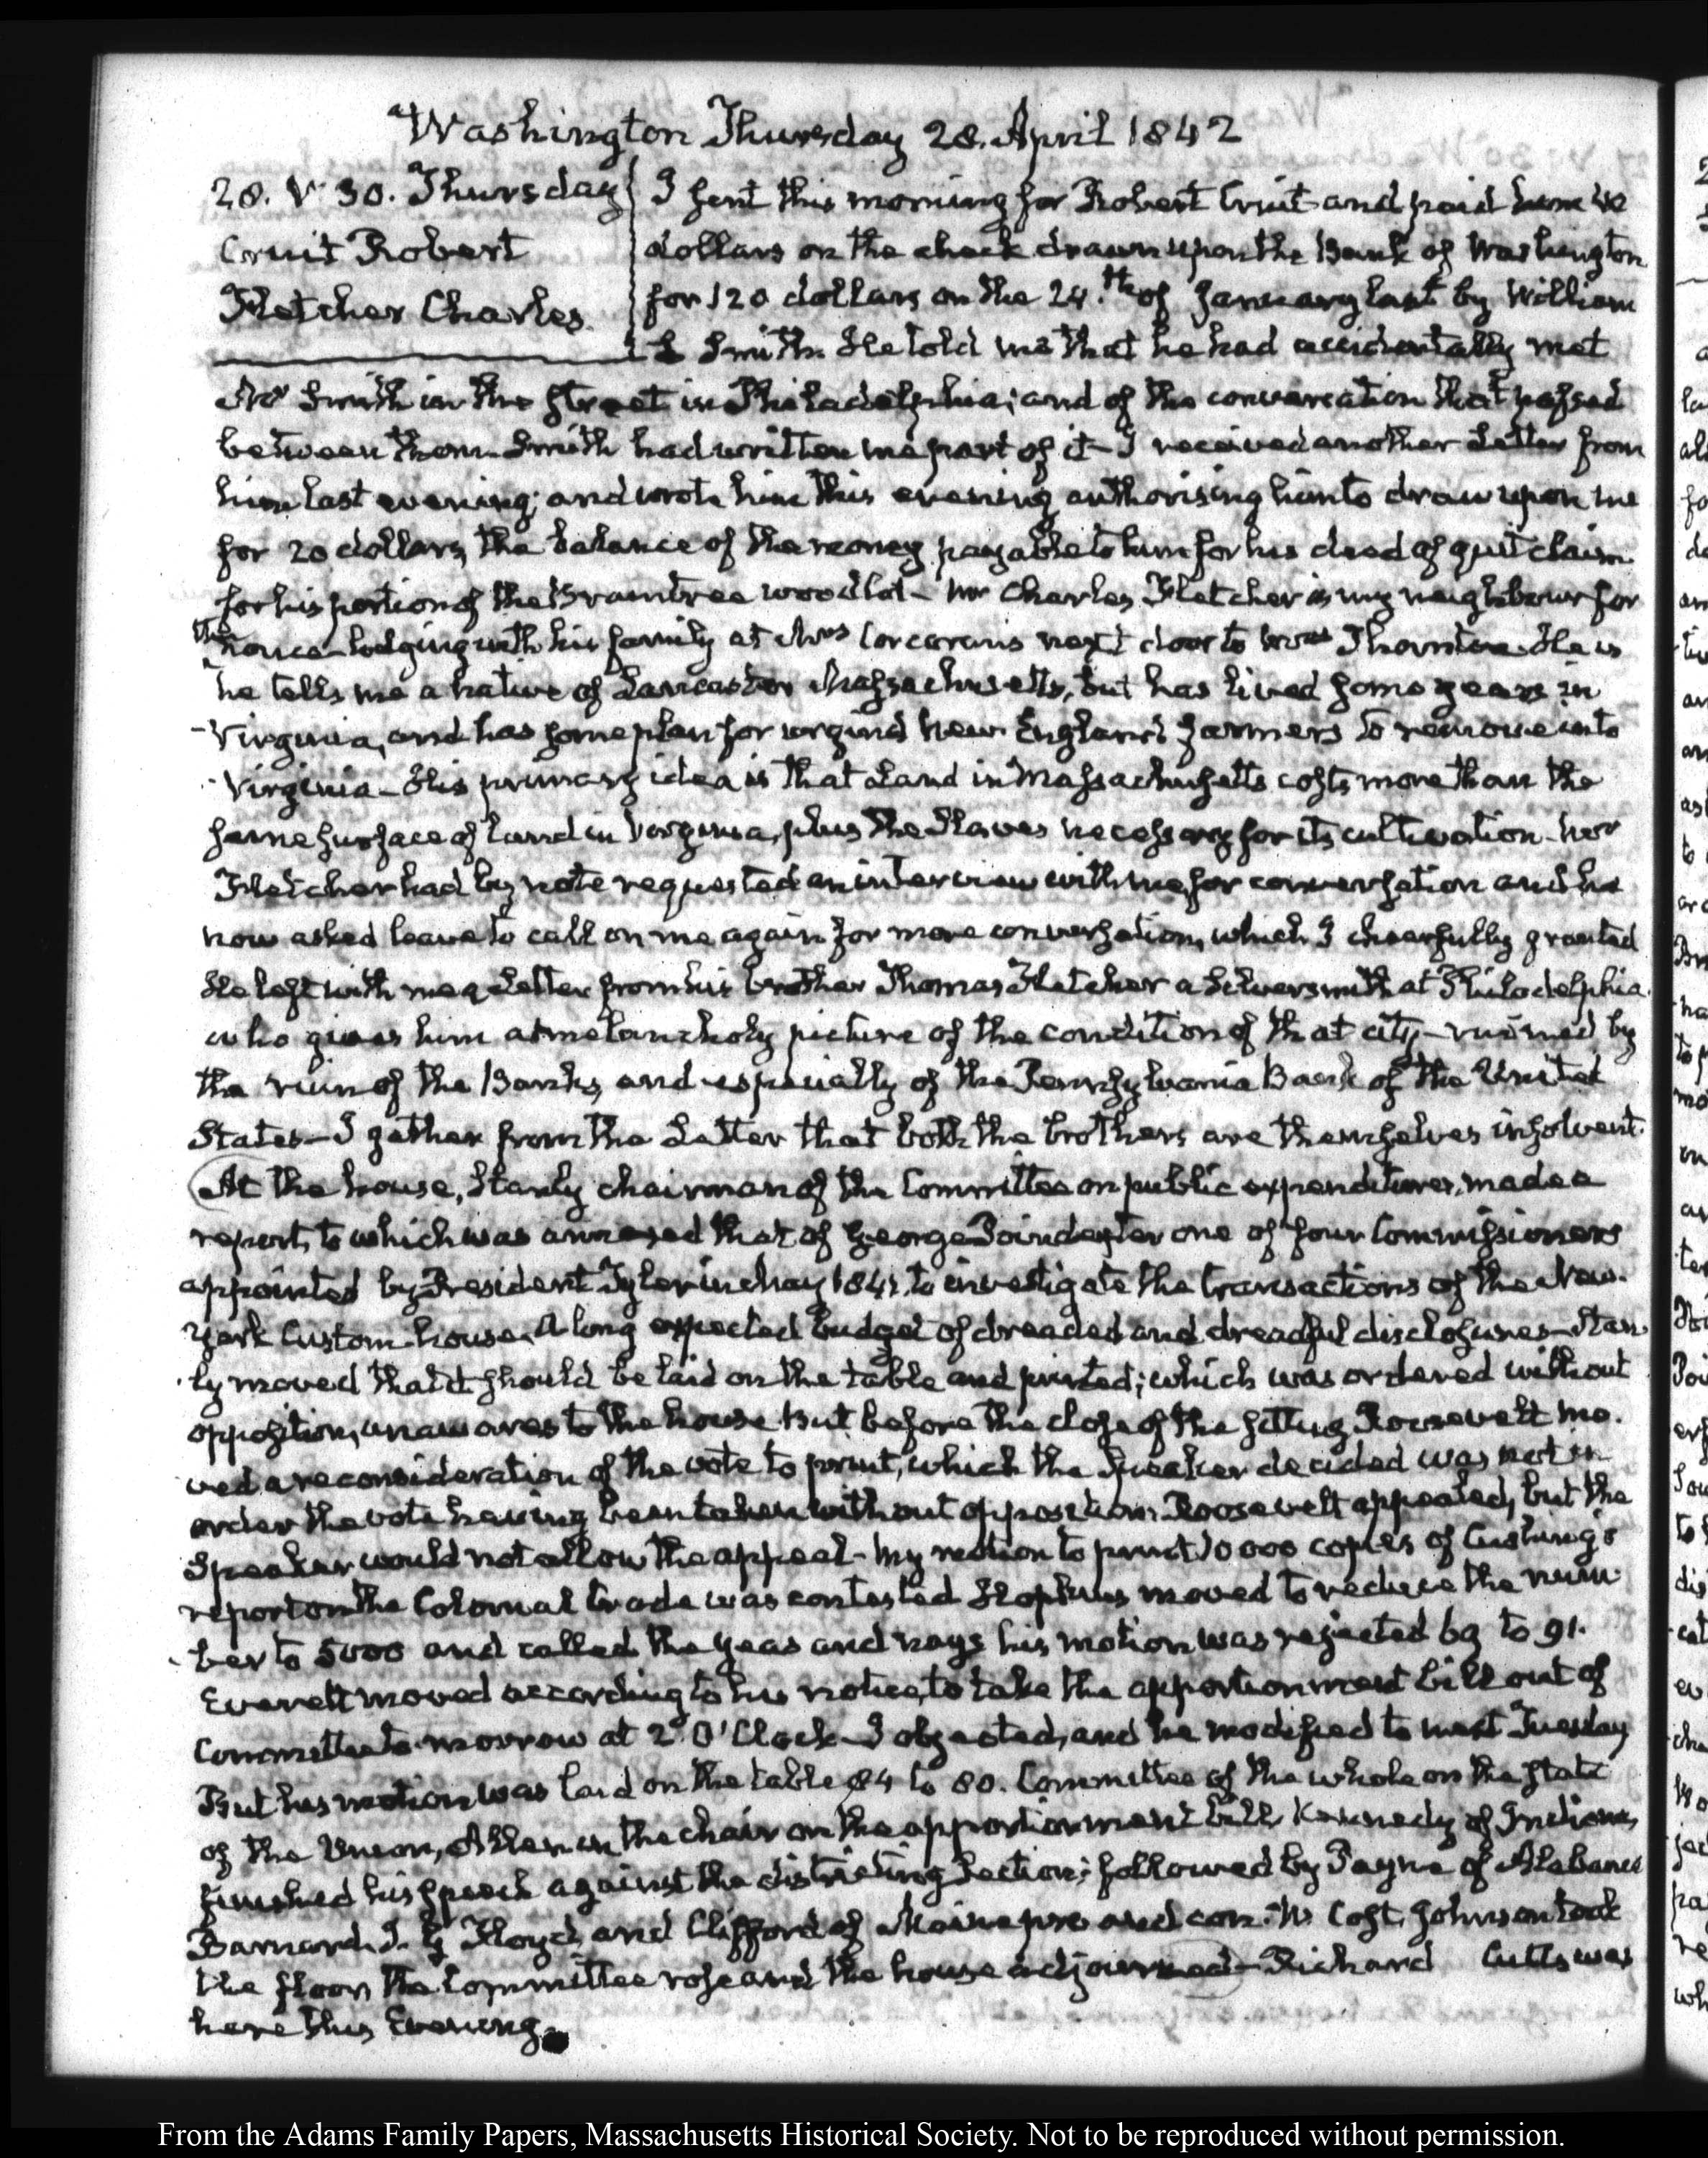 Washington Thursday 28. April 1842
28. V 30. Thursday
Cruit Robert
Fletcher Charles
I sent this morning for Robert Cruit and paid him
dollars on the check drawn upon the Bank of Washington
for 120 dollars on the 24.th of January last by William
Smith. He told me that he had accidentally met
Mr Smith in the street in Philadelphia; and of the conversation that passed
between them. Smith had written me part of it— I received another Letter from
him last evening; and wrote him this evening authorising him to draw upon me
for 20 dollars, the balance of the money payable to him for his deed of quit claim
for his portion of the Braintree wood lot— Mr Charles Fletcher is my neighbour for
the nonce— lodging with his family at Mrs Corcoran's next door to Mrs Thornton. He is
he tells me a native of Lancaster Massachusetts, but has lived some years in
Virginia, and has some plan for urging New England farmers to remove into
Virginia— His primary idea is that Land in Massachusetts costs more than the
same surface of land in Virginia, plus the Slaves necessary for its cultivation— Mr
Fletcher had by note requested an interview with me for conversation and he
now asked leave to call on me again for more conversation, which I cheerfully granted
He left with me a Letter from his brother Thomas Fletcher a Silversmith at Philadelphia
who gives him a melancholy picture of the condition of that city— ruined by
the ruin of the Banks, and especially of the Pennsylvania Bank of the United
States— I gather from the Letter that both the brothers are themselves insolvent.
At the house, Stanly chairman of the Committee on public expenditures, made a
report, to which was annexed that of George Poindexter one of four Commissioners
appointed by President Tyler in May 1841. to investigate the transactions of the New-
York Custom-house. A long expected budget of dreaded and dreadful disclosures— Stan
ly moved that it should be laid on the table and printed; which was ordered without
opposition, unawares to the house But before the close of the sitting Roosevelt mo-
ved a reconsideration of the vote to print, which the Speaker decided was not in
order the vote having been taken without opposition. Roosevelt appealed, but the
Speaker would not allow the appeal— My motion to print 10 000 copies of Cushing's
report on the Colonial trade was contested Hopkins moved to reduce the num-
ber to 5000 and called the yeas and nays his motion was rejected 69 to 91.
Everett moved according to his notice, to take the apportionment bill out of
Committee to-morrow at 2 O'Clock— I objected, and he modified to next Tuesday
But his motion was laid on the table 84 to 80. Committee of the whole on the state
of the Union, Allen in the chair on the apportionment bill Kennedy of Indiana,
finished his speech against the districting section; followed by Payne of Alabama
Barnard. J. G Floyd, and Clifford of Maine pro and con. W. Cost. Johnson took
the floor the Committee rose and the house adjourned— Richard Cutts was
here this Evening.
From the Adams Family Papers, Massachusetts Historical Society. Not to be reproduced without permission.